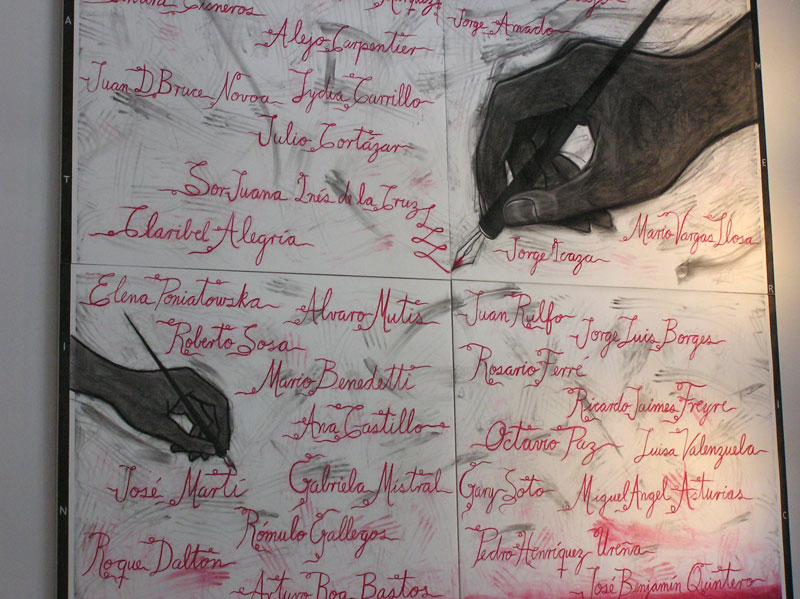 Cisneros
Alejo Carpentier
Juan D Bruce Novoa Lydia Carrillo
Julio Cortázar
Sor Juana Inés de la Cruz
Claribel Alegría
Jorge Amado
Mario Vargas Llosa
Jorge Icaza
Elena Poniatowska
Alvaro Mutis
Roberto Sosa
Mario Benedetti
Ana Castillo
José Martí
Gabriela Mistral
Rómulo Gallegos
Roque Dalton
Arturo Roa Bastos
Juan Rulfo
Jorge Luis Borges
Rosario Ferré
Ricardo Jaimes Freyre
Octavio Paz
Luisa Valenzuela
Gary Soto
Miguel Angel Asturias
Pedro Henríquez Ureña
José Benjamin Quintero
A
T
I
N
M
E
R
I
C